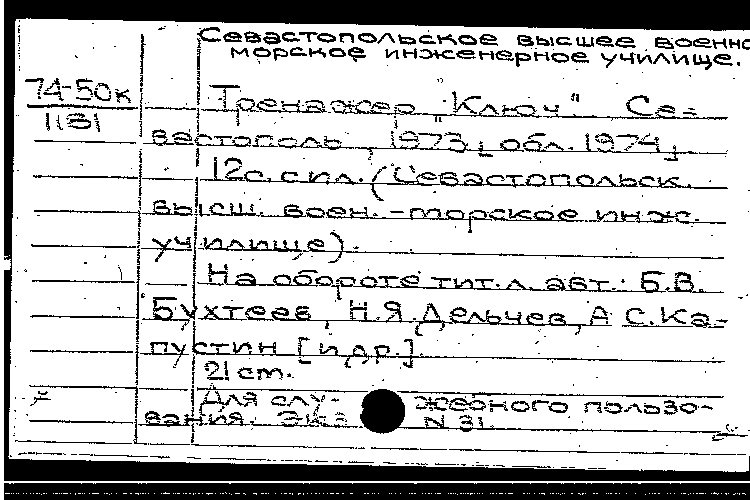 Севастопольское высшее военно
морское инженерное училище.
74-50к
1131
Тренажер "Ключ". Се-
вастополь, 1973, [обл. 1974].
12с. с ил. (Севастопольск.
высш. воен.-морское инж.
училище).
На обороте тит. л. авт.: Б.В.
Бухтеев, Н.Я. Дельчев, А С. Ка-
пустин [и др.].
21 см.
Для слу- жебного пользо-
вания. Экз N 31.